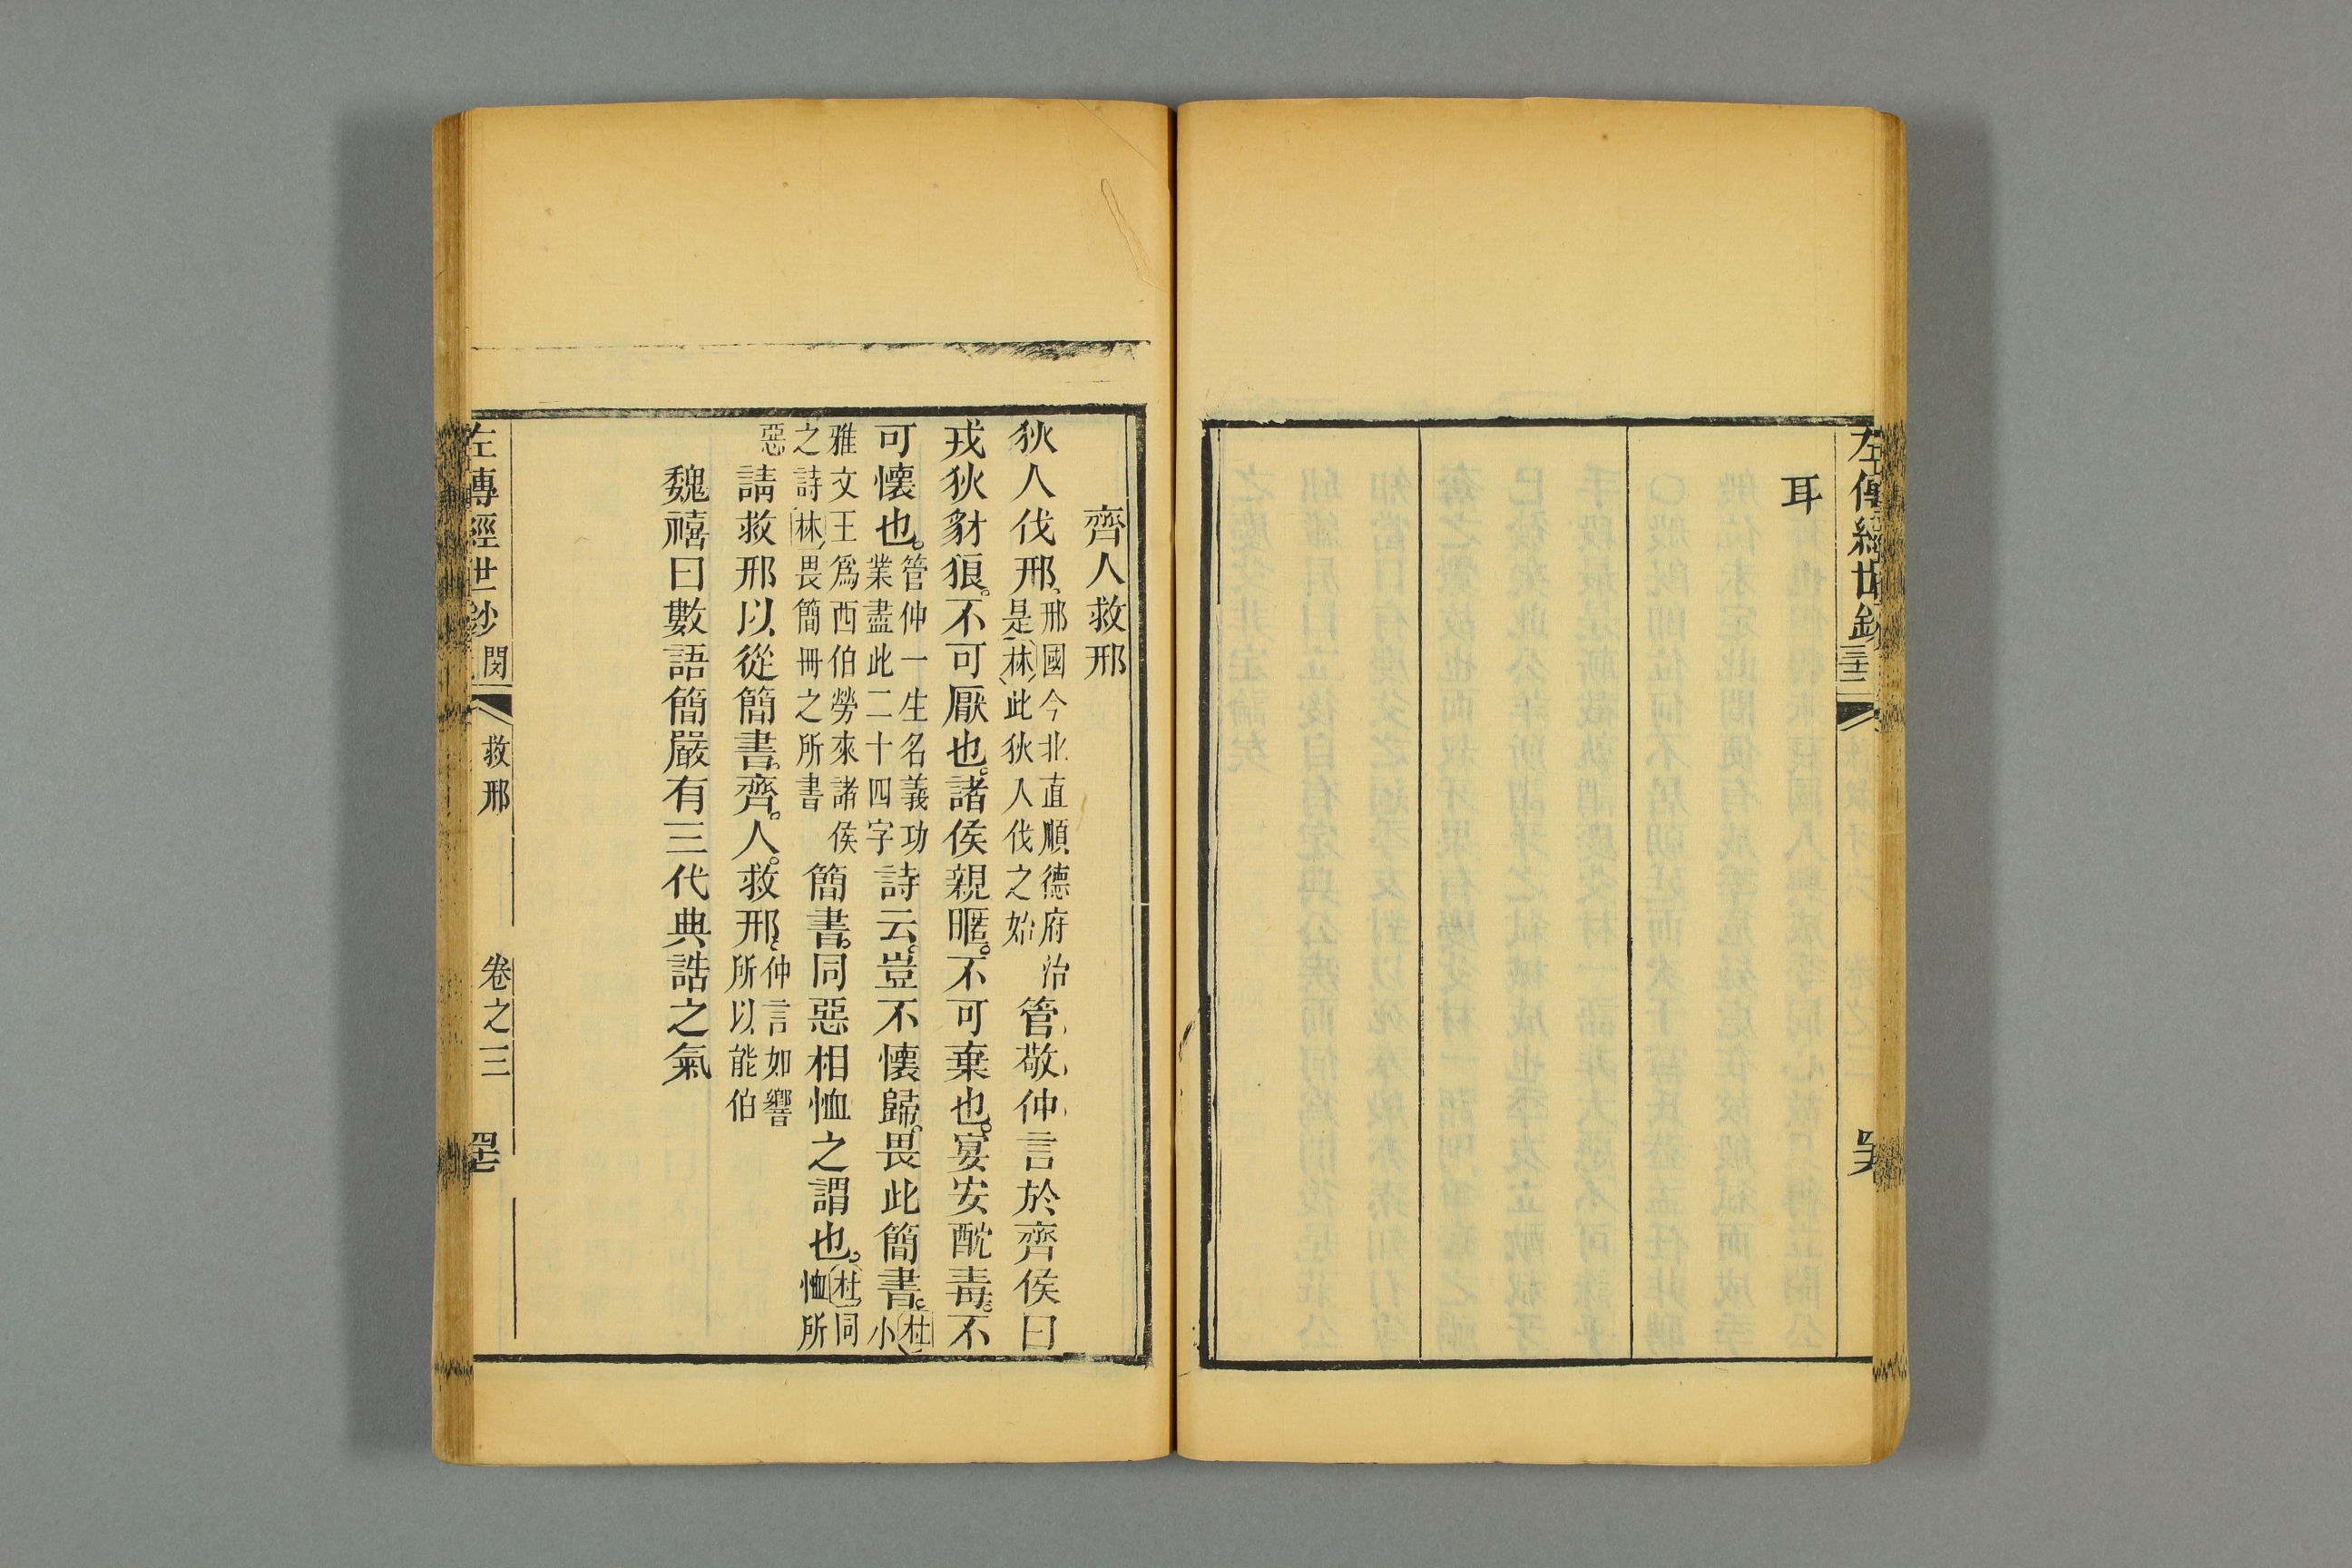 耳
齊人救邢
狄人伐邢、邢國今北直順德府治是林此狄人伐之始管敬仲言於齊侯曰
戎狄豺狼。不可厭也。諸侯親暱。不可棄也。宴安酖毒。不
可懷也。管仲一生名義功業盡此二十四字詩云。豈不懷歸。畏此簡書。杜小
雅文王爲西伯勞來諸侯之詩林畏簡冊之所書簡書。同惡相恤之謂也。杜同恤所
惡請救邢以從簡書。齊。人。救邢、仲言如響所以能伯
魏禧曰數語簡嚴有三代典誥之氣
左傳經世鈔 閔 救邢 卷之三